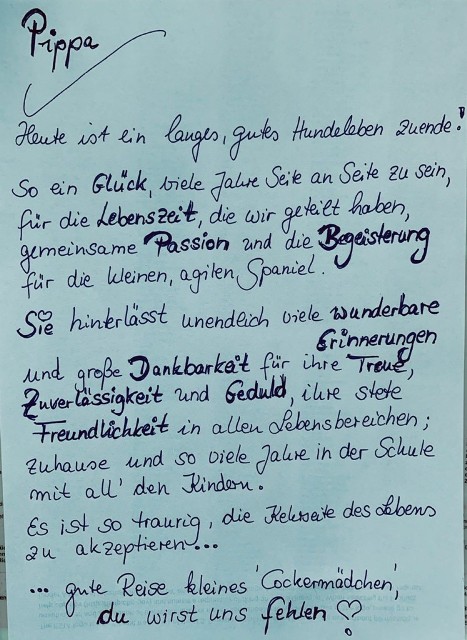 Pippa
Heute ist ein langes, gutes Hundeleben zuende!
So ein Glück, viele Jahre Seite an Seite zu sein,
für die Lebenszeit, die wir geteilt haben,
gemeinsame Passion und die Begeisterung
für die kleinen, agilen Spaniel.
Sie hinterlässt unendlich viele wunderbare
Erinnerungen
und große Dankbarkeit für ihre Treue,
Zuverlässigkeit und Geduld, ihre stete
Freundlichkeit in allen Lebensbereichen;
zuhause und so viele Jahre in der Schule
mit all' den Kindern.
Es ist so traurig, die Kehrseite des Lebens
zu akzeptieren...
... gute Reise kleines 'Cockermädchen',
du wirst uns fehlen ♡